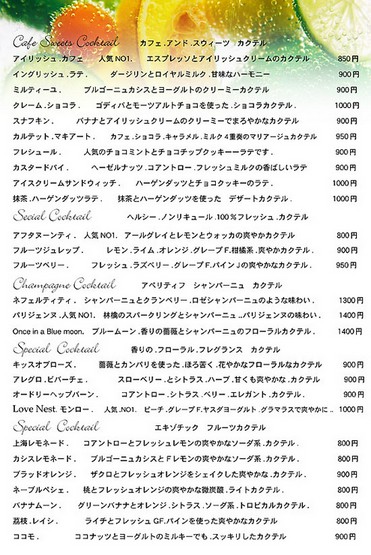 Cafe Sweets Cocktail カフェ.アンド.スウィーツ カクテル
アイリッシュ.カフェ 人気NO1. エスプレッソとアイリッシュクリームのカクテル 850円
イングリッシュ.ラテ. ダージリンとロイヤルミルク.甘味なハーモニー 900円
ミルティーユ. ブルゴーニュカシスとヨーグルトのクリーミーカクテル 900円
クレーム.ショコラ. ゴディバとモーツアルトチョコを使った.ショコラカクテル. 1000円
スナフキン. バナナとアイリッシュクリームのクリーミーでまろやかなカクテル 900円
カルテット.マキアート. カフェ.ショコラ.キャラメル.ミルク4重奏のマリアージュカクテル 950円
フレシュール. 人気のチョコミントとチョコチップクッキーーラテです. 900円
カスタードパイ. ヘーゼルナッツ.コアントロー.フレッシュミルクの香ばしいラテ 900円
アイスクリームサンドウィッチ. ハーゲンダッツとチョコクッキーのラテ. 1000円
抹茶.ハーゲンダッツラテ. 抹茶とハーゲンダッツを使った デザートカクテル. 1000円
Secial Cocktail ヘルシー.ノンリキュール.100%フレッシュ.カクテル
アフタヌーンティ. 人気NO1. アールグレイとレモンとウォッカの爽やかカクテル 800円
フルーツジュレップ. レモン.ライム.オレンジ.グレープF.柑橘系.爽やかカクテル. 900円
フルーツベリー. フレッシュ.ラズベリー.グレープF.パインJの爽やかなカクテル. 950円
Champagne Cocktail アペリティフ シャンパーニュ カクテル
ネフェルティティ. シャンパーニュとクランベリー.ロゼシャンパーニュのような味わい. 1300円
パリジェンヌ.人気NO1. 林檎のスパークリングとシャンパーニュ..パリジェンヌの味わい. 1400円
Once in a Blue moon. ブルームーン.香りの薔薇とシャンパーニュのフローラルカクテル. 1400円
Special Cocktail 香りの.フローラル.フレグランス カクテル
キッスオブローズ. 薔薇とカンパリを使った.ほろ苦く.花やかなフローラルなカクテル 900円
アレグロ.ビバーチェ. スローベリー.とシトラス.ハーブ.甘くも爽やかな.カクテル. 900円
オードリーヘップバーン. コアントロー.シトラス.ベリー.エレガント.カクテル. 900円
Love Nest. モンロー. 人気.NO1. ピーチ.グレープF.ヤスダヨーグルト.グラマラスで爽やかに.. 1000円
Special Cocktail エキゾチック フルーツカクテル
上海レモネード. コアントローとフレッシュレモンの爽やかなソーダ系.カクテル. 800円
カシスレモネード. ブルゴーニュカシスとFレモンの爽やかなソーダ系.カクテル. 800円
ブラッドオレンジ. ザクロとフレッシュオレンジをシェイクした爽やかな.カクテル. 900円
ネーブルペシェ. 桃とフレッシュオレンジの爽やかな微炭酸.ライトカクテル. 800円
バナナムーン. グリーンバナナとオレンジ.シトラス.ソーダ系.トロピカルカクテル. 800円
荔枝.レイシ. ライチとフレッシュGF.パインを使った爽やかカクテル 800円
ココモ. ココナッツとヨーグルトのミルキーでも.スッキリしたカクテル 900円